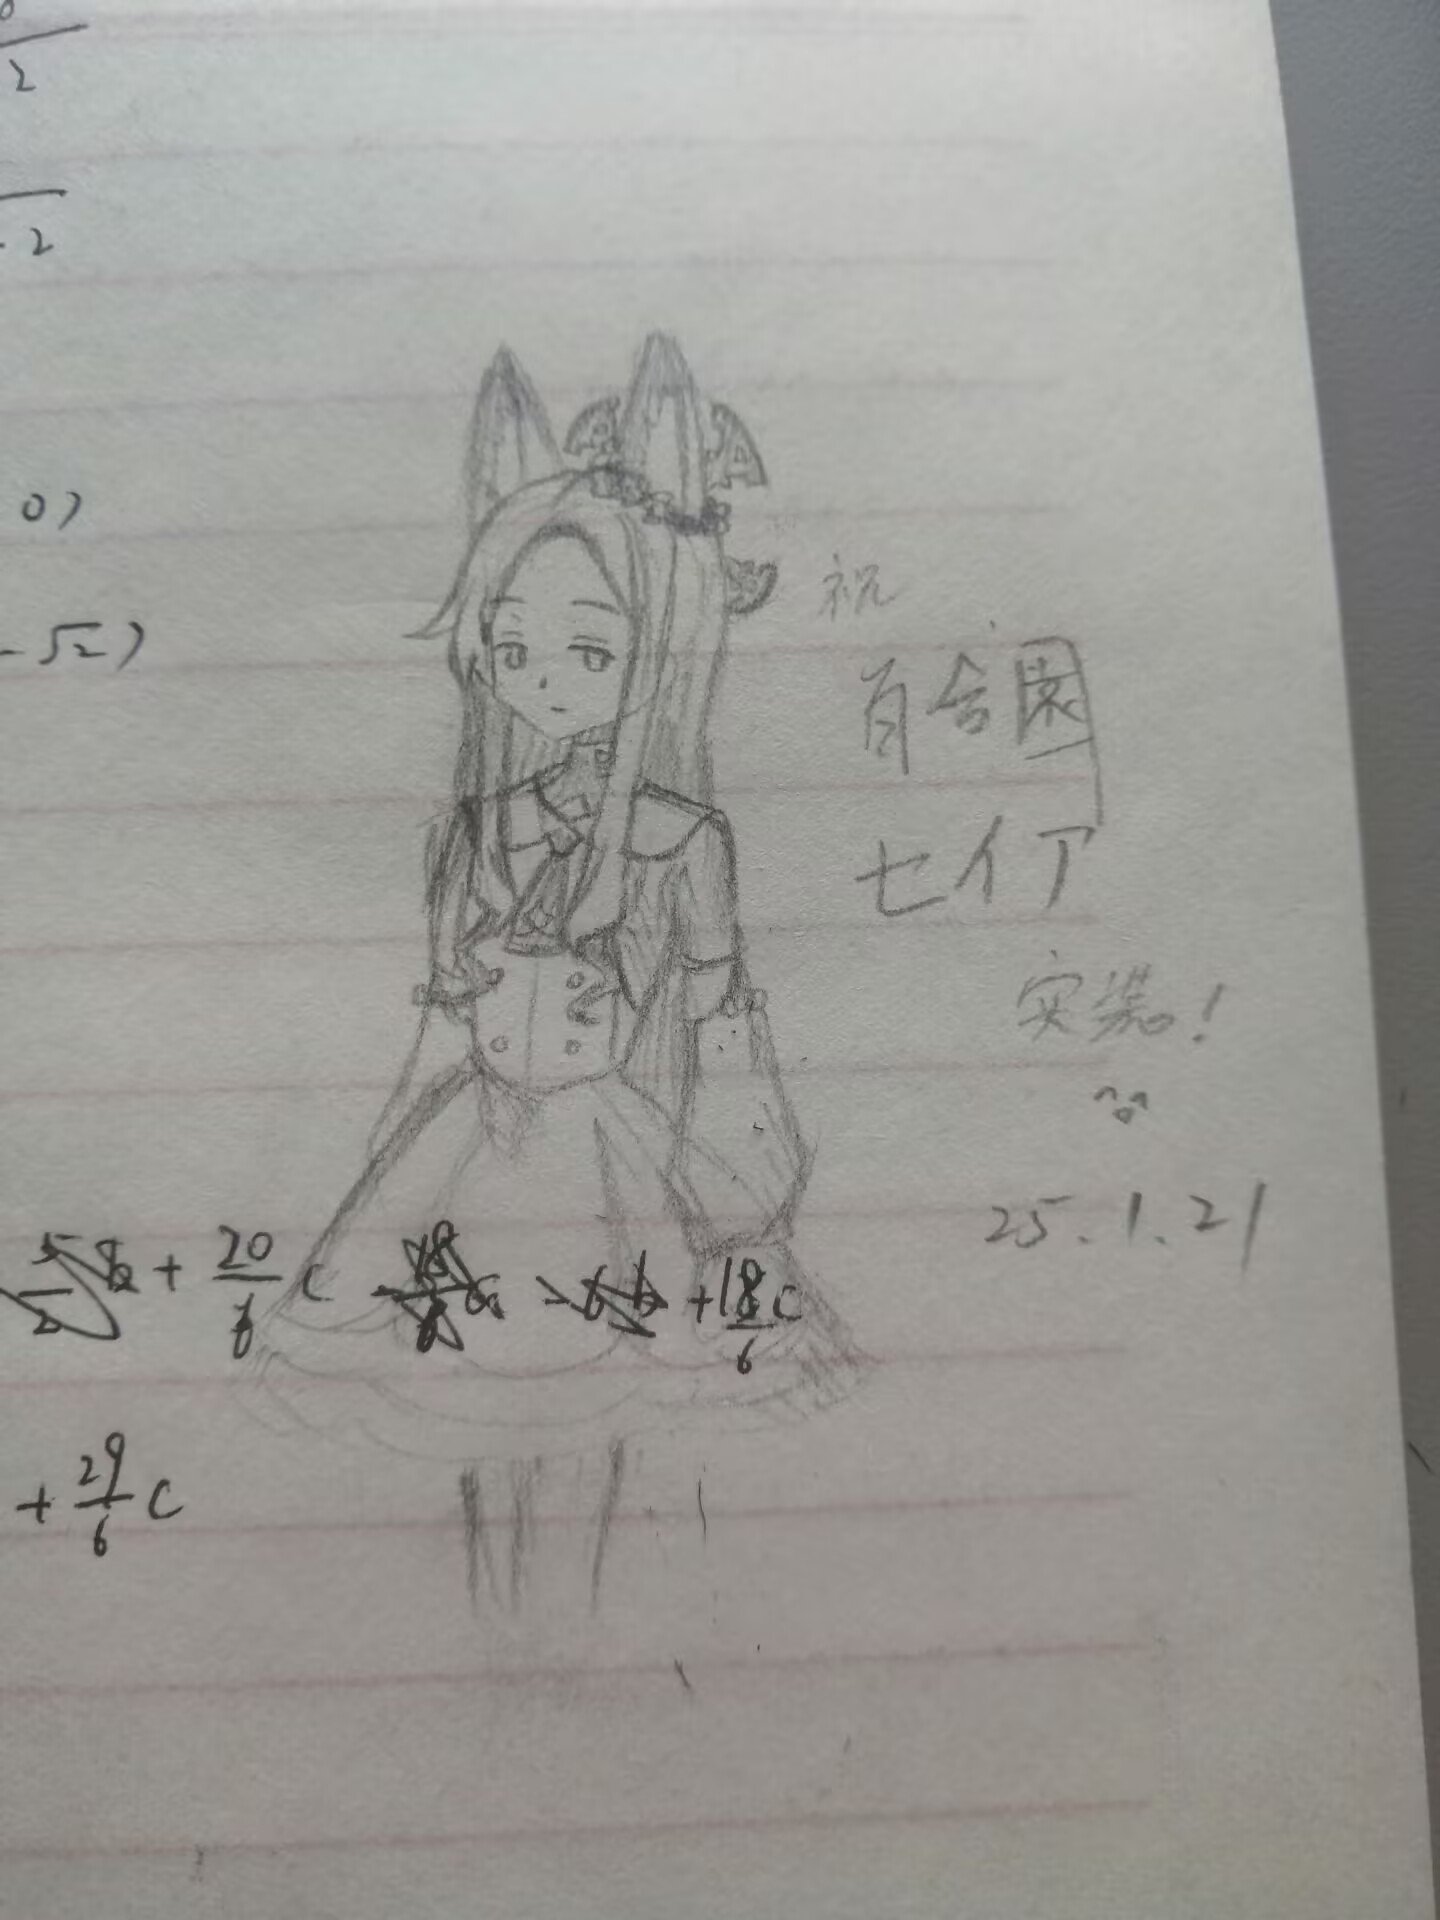 2
2
0)
-√2)
祝
百合園
七イ丁
实装!
^o^
25.1.21
+ 20/6 c
+ 18/6 c
+ 29/6 c